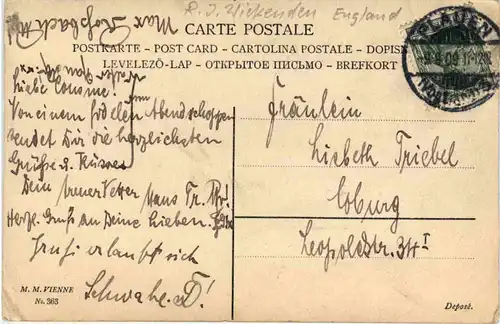 R. J. Wickenden England
Max Roßbach
CARTE POSTALE
POSTKARTE - POST CARD - CARTOLINA POSTALE - DOPISN
LEVELEZŐ-LAP - ОТКРЫТОЕ ПИСЬМО - BREFKORT
PLAUEN
Liebe Cousine!
Von einem fidelen Abendschoppen
sendet Dir die herzlichsten
Grüße u. Küsse
Dein treuer Vetter Hans
Herzl. Gruß an Deine Lieben.
Gruß erlaubt sich
Schwabe
Fräulein
Lisbeth Triebel
Coburg
Leopoldstr. 34 I
M. M. VIENNE
No. 363
Deposé.